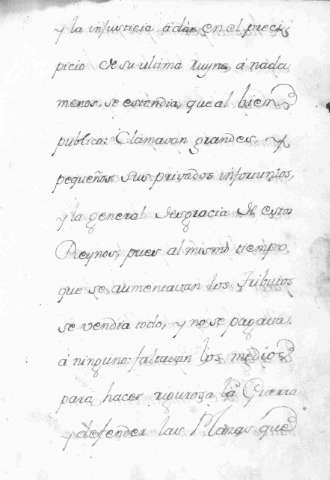 y la injusticia à dar en el preci,
picio de su ultima ruyna, à nada
menos se estendia, que al bien
publico: Clamavan grandes, y
pequeños sus privados infortunios,
y la general desgracia de estos
Reynos, pues al mismo tiempo,
que se aumentavan los Tributos
se vendia todo, y no se pagava,
à ninguno: faltavan los medios
para hacer vigurosa la Guerra
y defender las Plazas que